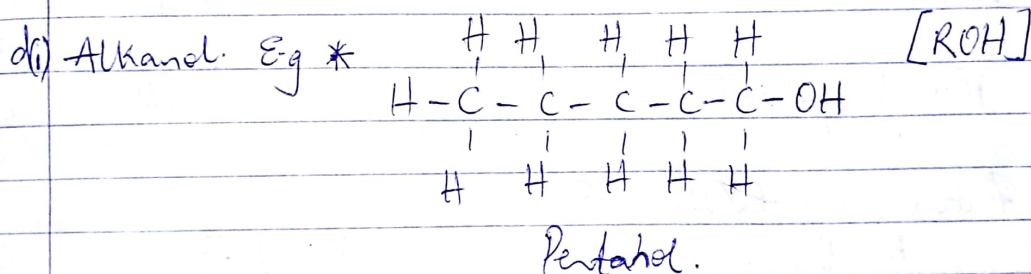 d(i) Alkanol. E.g * H H H H H [ROH]
H-C-C-C-C-C-OH
H H H H H
Pentanol.